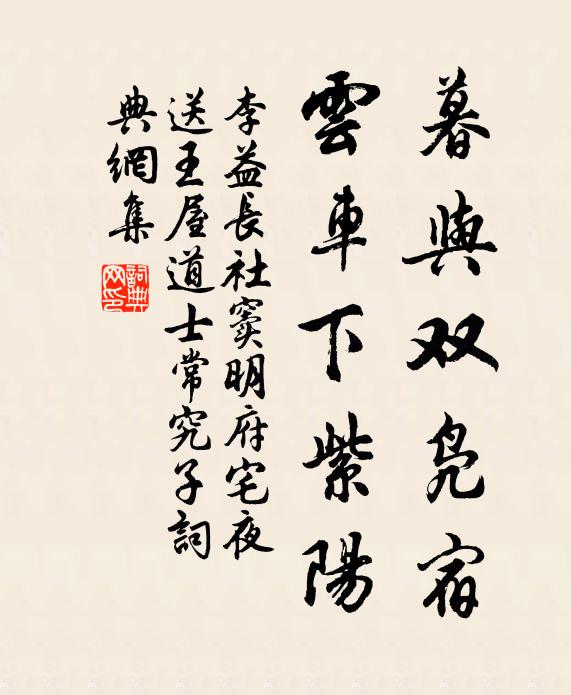 暮與双鳧宿
雲車下紫陽
李益長社竇明府宅夜
送王屋道士常究子詞
典網集
詞典网印